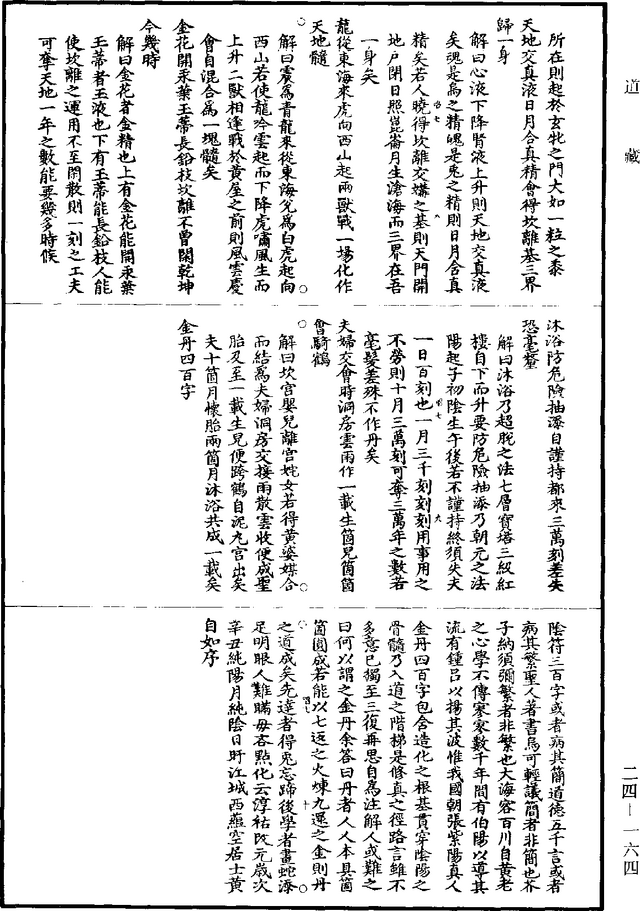 道藏
所在則起於玄牝之門大如一粒之黍
天地交真液日月合真精會得坎離基三界
歸一身
解曰心液下降腎液上升則天地交真液
矣魂是烏之精魄是兔之精則日月含真
精矣若人曉得坎離交媾之基則天門開
地戶閉日照崑崙月生滄海而三界在吾
一身矣
龍從東海來虎向西山起兩獸戰一場化作
天地髓
解曰震為青龍來從東海兌為白虎起向
西山若使龍吟雲起而下降虎嘯風生而
上升二獸相逢戰於黃屋之前則風雲慶
會自混合為一塊髓矣
金花開汞葉玉蒂長鉛枝坎離不曾閑乾坤
今幾時
解曰金花者金精也上有金花能開汞葉
玉蒂者玉液也下有玉蒂能長鉛枝人能
使坎離之運用不至閑散則一刻之工夫
可奪天地一年之數能要幾多時候
沐浴防危險抽添自謹持都來三萬刻差失
恐毫釐
解曰沐浴乃超脫之法七層寶塔三級紅
樓自下而升要防危險抽添乃朝元之法
陽起子初陰生午後若不謹持終須失夫
一日百刻也一月三千刻刻刻用事用之
不勞則十月三萬刻可奪三萬年之數若
毫髮差殊不作丹矣
夫婦交會時洞房雲雨作一載生箇兒箇箇
會騎鶴
解曰坎宮嬰兒離宮姹女若得黃婆媒合
而結為夫婦洞房交接雨散雲收便成聖
胎及至一載生兒便跨鶴自泥丸宮出矣
夫十箇月懷胎兩箇月沐浴共成一載矣
金丹四百字
陰符三百字或者病其簡道德五千言或者
病其繁聖人著書烏可輕議簡者非簡也芥
子納須彌繁者非繁也大海容百川自黃老
之心學不傳寥寥數千年間有伯陽以導其
流有鍾呂以揚其波惟我國朝張紫陽真人
金丹四百字包含造化之根基貫穿陰陽之
骨髓乃入道之階梯是修真之徑路言雖不
多意已獨至三復再思自為注解人或難之
曰何以謂之金丹余答曰丹者人人本具箇
箇圓成若能以七返之火煉九還之金則丹
之道成矣先達者得兎忘蹄後學者畫蛇添
足明眼人難瞞毋吝點化云淳祐改元歲次
辛丑純陽月純陰日旴江城西蘊空居士黃
自如序
二四—一六四